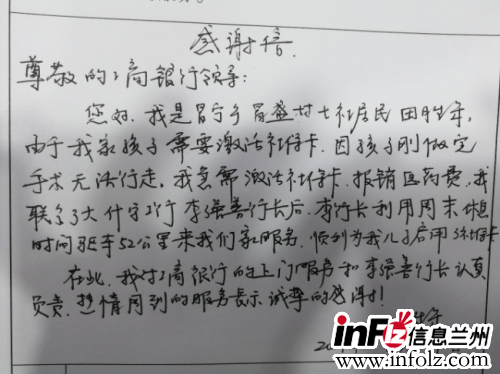 感谢信
尊敬的工商银行领导:
您好.我是冒宁乡冒盛村七社居民田胜年,
由于我家孩子需要激活社保卡.因孩子刚做完
手术无法行走.我急需激活社保卡.报销医药费,我
联系了大什字工行李强善行长后.李行长利用周末休息
时间驱车52公里来我们家服务.顺利为我儿子启用社保卡
在此.我对工商银行的上门服务和李强善行长认真
负责.热情周到的服务表示诚挚的感谢!
infLz信息兰州
www.infolz.com